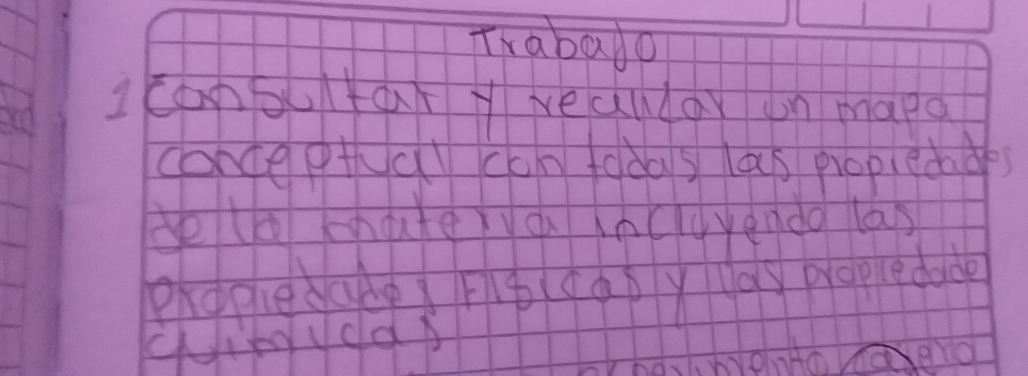 Trabajo
1 Consultar y realizar un mapa
conceptual con todas las propiedades
de la materia incluyendo las
propiedades Fisicas y las propiedade
quimicas